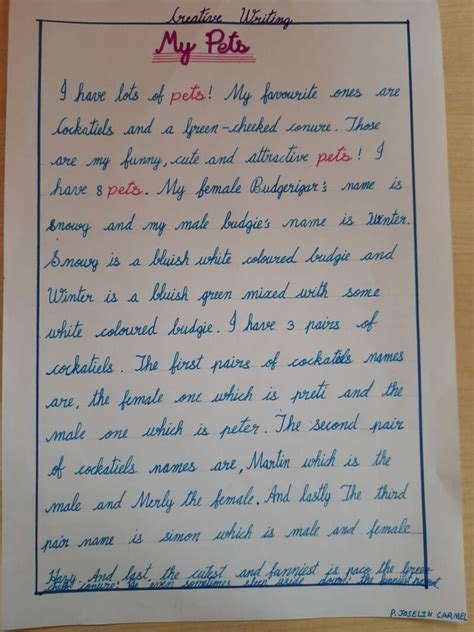 Creative Writing
My Pets
I have lots of pets! My favourite ones are
Cockatiels and a Green-cheeked conure. Those
are my funny, cute and attractive pets! I
have 8 pets. My female Budgerigar's name is
Snowy and my male budgie's name is Winter.
Snowy is a bluish white coloured budgie and
Winter is a bluish green mixed with some
white coloured budgie. I have 3 pairs of
cockatiels. The first pairs of cockatiels names
are, the female one which is preti and the
male one which is peter. The second pair
of cockatiels names are, Martin which is the
male and Merly the female. And lastly The third
pair name is simon which is male and female
Hazy. And last, the cutest and funniest is paco the Green
cheeked conure. He even sometimes sleep upside down! the funniest parrot.
P. JOSELIN CARMEL